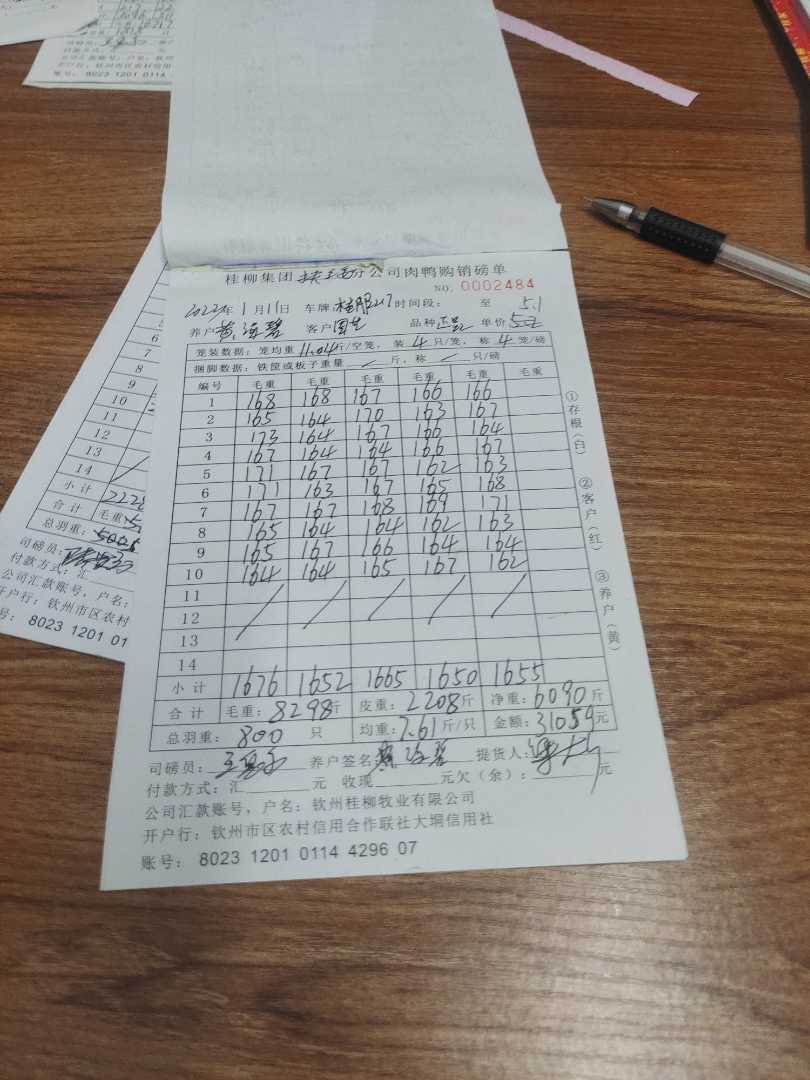 桂柳集团 分公司肉鸭购销磅单
NO. 0002484
2023年1月11日 车牌: 时间段: 至 5.1
养户 黄 碧 客户 国 品种 正品 单价
笼装数据: 笼均重 11.04斤/空笼, 装 4 只/笼, 称 4 笼/磅
捆脚数据: 铁筐或板子重量 / 斤, 称 / 只/磅
编号 毛重 毛重 毛重 毛重 毛重 毛重
1 168 168 167 166 166
2 165 164 170 163 167
3 173 164 167 166 164
4 167 164 164 166 167
5 171 167 167 162 163
6 171 163 167 165 168
7 167 167 168 169 171
8 165 164 164 162 163
9 165 167 166 164 164
10 164 164 165 167 162
11
12
13
14
小计 1676 1652 1665 1650 1655
合计 毛重: 8298斤 皮重: 2208斤 净重: 6090斤
总羽重: 800 只 均重: 7.61斤/只 金额: 31059元
司磅员: 养户签名: 提货人:
付款方式: 汇 元 收现 元欠(余): 元
公司汇款账号, 户名: 钦州桂柳牧业有限公司
开户行: 钦州市区农村信用合作联社大垌信用社
账号: 8023 1201 0114 4296 07
①存根(白)
②客户(红)
③养户(黄)
付款方式:
开户行: 钦州市区农村信用
账号: 8023 1201 0114
7
8
9
10
11
12
13
14
小计
合计 毛重:
总羽重:
司磅员:
付款方式: 汇
公司汇款账号, 户名:
开户行: 钦州市区农村
号: 8023 1201 01